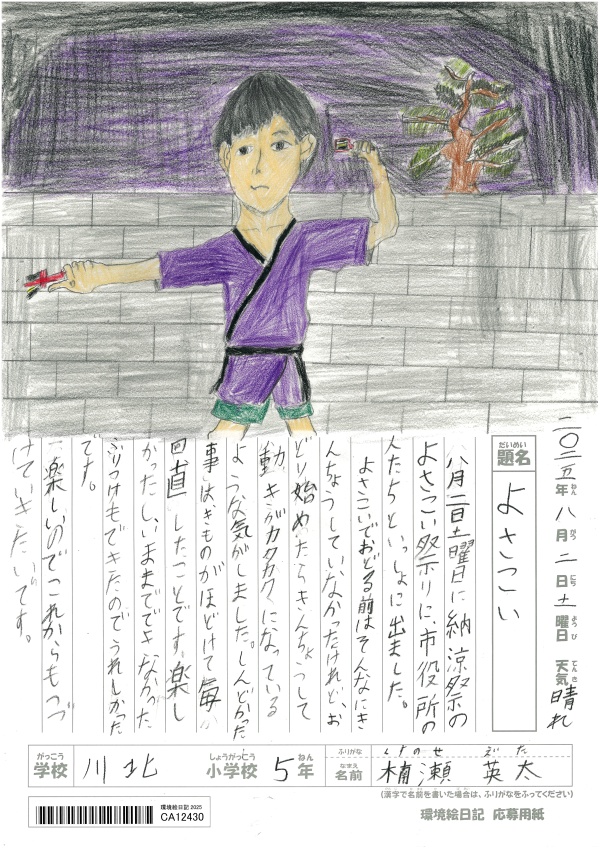 二〇二五年八月二日土曜日 天気晴れ
ねん がつ にち ようび てんき
だいめい
題名
よさこい
八月二日土曜日に納涼祭の
よさこい祭りに、市役所の
人たちといっしょに出ました。
よさこいでおどる前はそんなにき
んちょうしていなかったけれど、お
どり始めたらきんちょうして
動きがカクカクになっている
ような気がしました。しんどかった
事はきものがほどけて毎
回直したことです。楽し
かったし、いままでできなかった
ふりつけもできたのでうれしかった
です。
楽しいのでこれからもつづ
けていきたいです。
がっこう
学校
川北
しょうがっこう
小学校
5
ねん
年
ふりがな
くすのせ えいた
なまえ
名前
楠瀬 英太
(漢字で名前を書いた場合は、ふりがなをふってください)
環境絵日記 2025
CA12430
環境絵日記 応募用紙